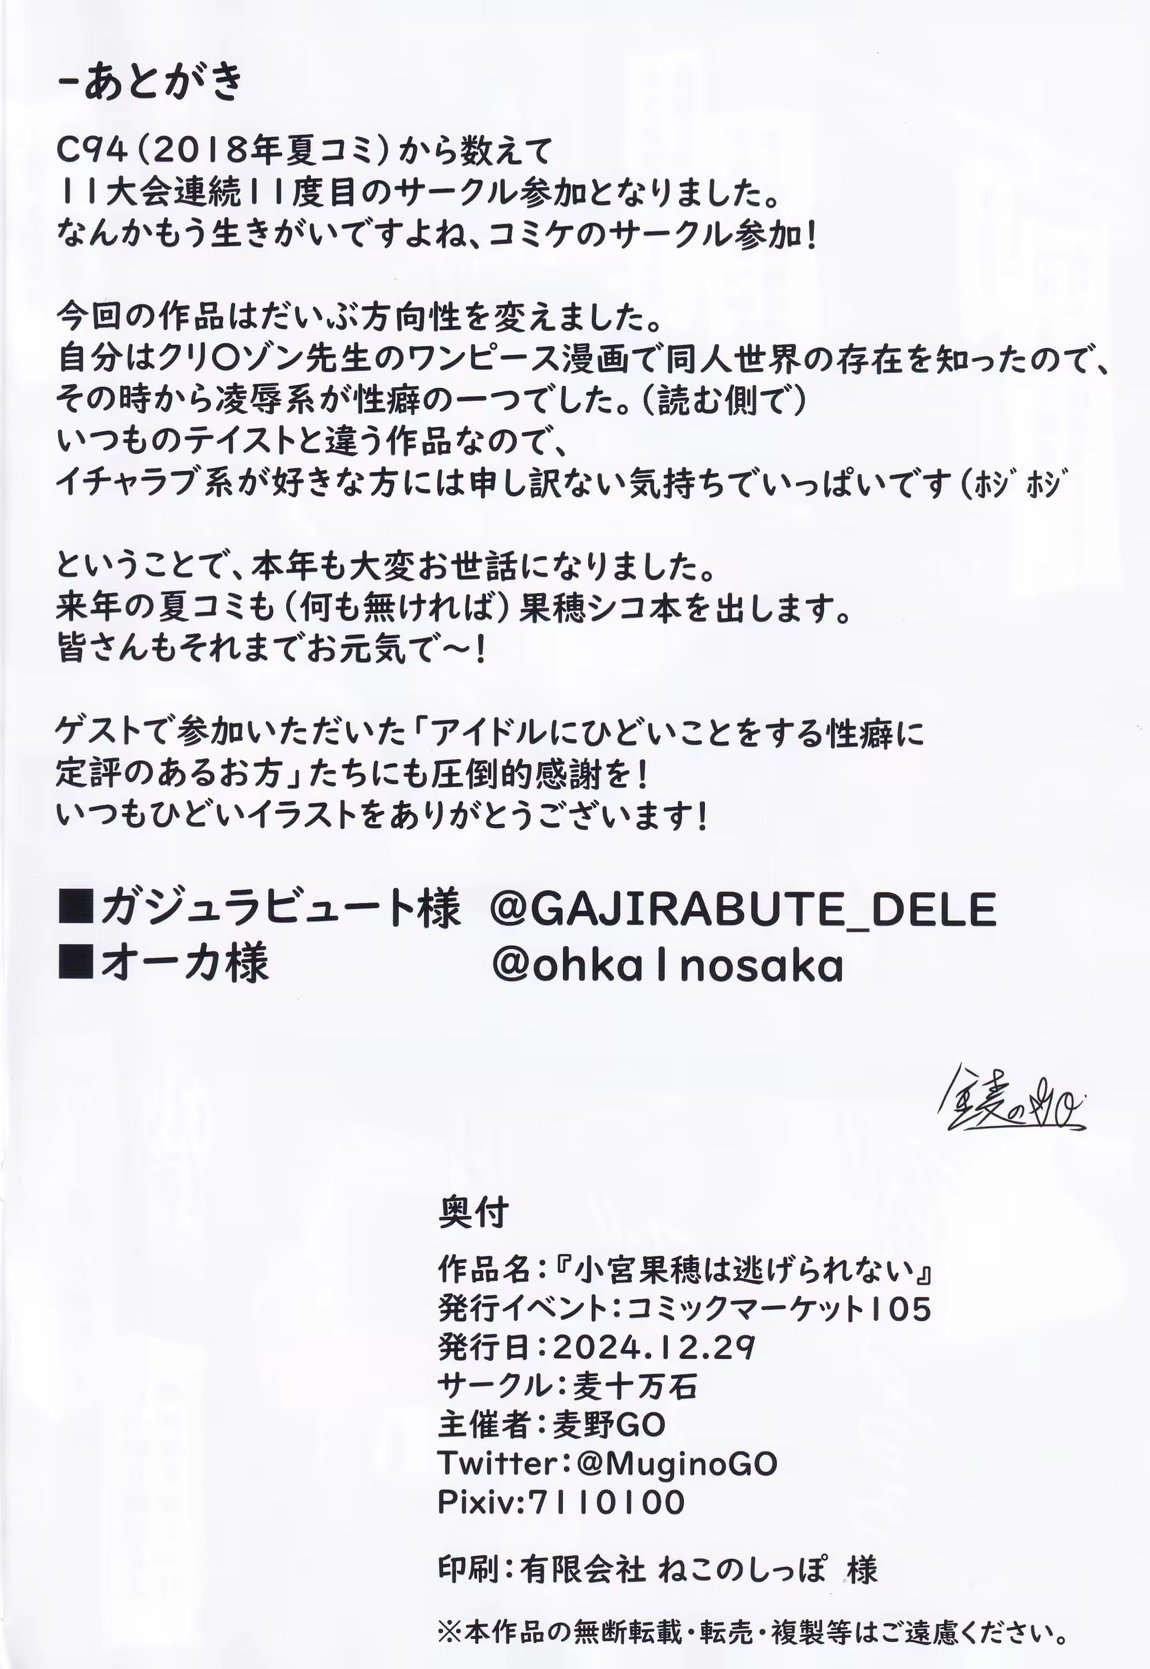 -あとがき
C94（2018年夏コミ）から数えて
11大会連続11度目のサークル参加となりました。
なんかもう生きがいですよね、コミケのサークル参加！
今回の作品はだいぶ方向性を変えました。
自分はクリ〇ゾン先生のワンピース漫画で同人世界の存在を知ったので、
その時から凌辱系が性癖の一つでした。（読む側で）
いつものテイストと違う作品なので、
イチャラブ系が好きな方には申し訳ない気持ちでいっぱいです（ﾎｼﾞﾎｼﾞ
ということで、本年も大変お世話になりました。
来年の夏コミも（何も無ければ）果穂シコ本を出します。
皆さんもそれまでお元気で～！
ゲストで参加いただいた「アイドルにひどいことをする性癖に
定評のあるお方」たちにも圧倒的感謝を！
いつもひどいイラストをありがとうございます！
■ガジュラビュート様 @GAJIRABUTE_DELE
■オーカ様 @ohka1nosaka
奥付
作品名：『小宮果穂は逃げられない』
発行イベント：コミックマーケット105
発行日：2024.12.29
サークル：麦十万石
主催者：麦野GO
Twitter：@MuginoGO
Pixiv:7110100
印刷：有限会社 ねこのしっぽ 様
※本作品の無断転載・転売・複製等はご遠慮ください。